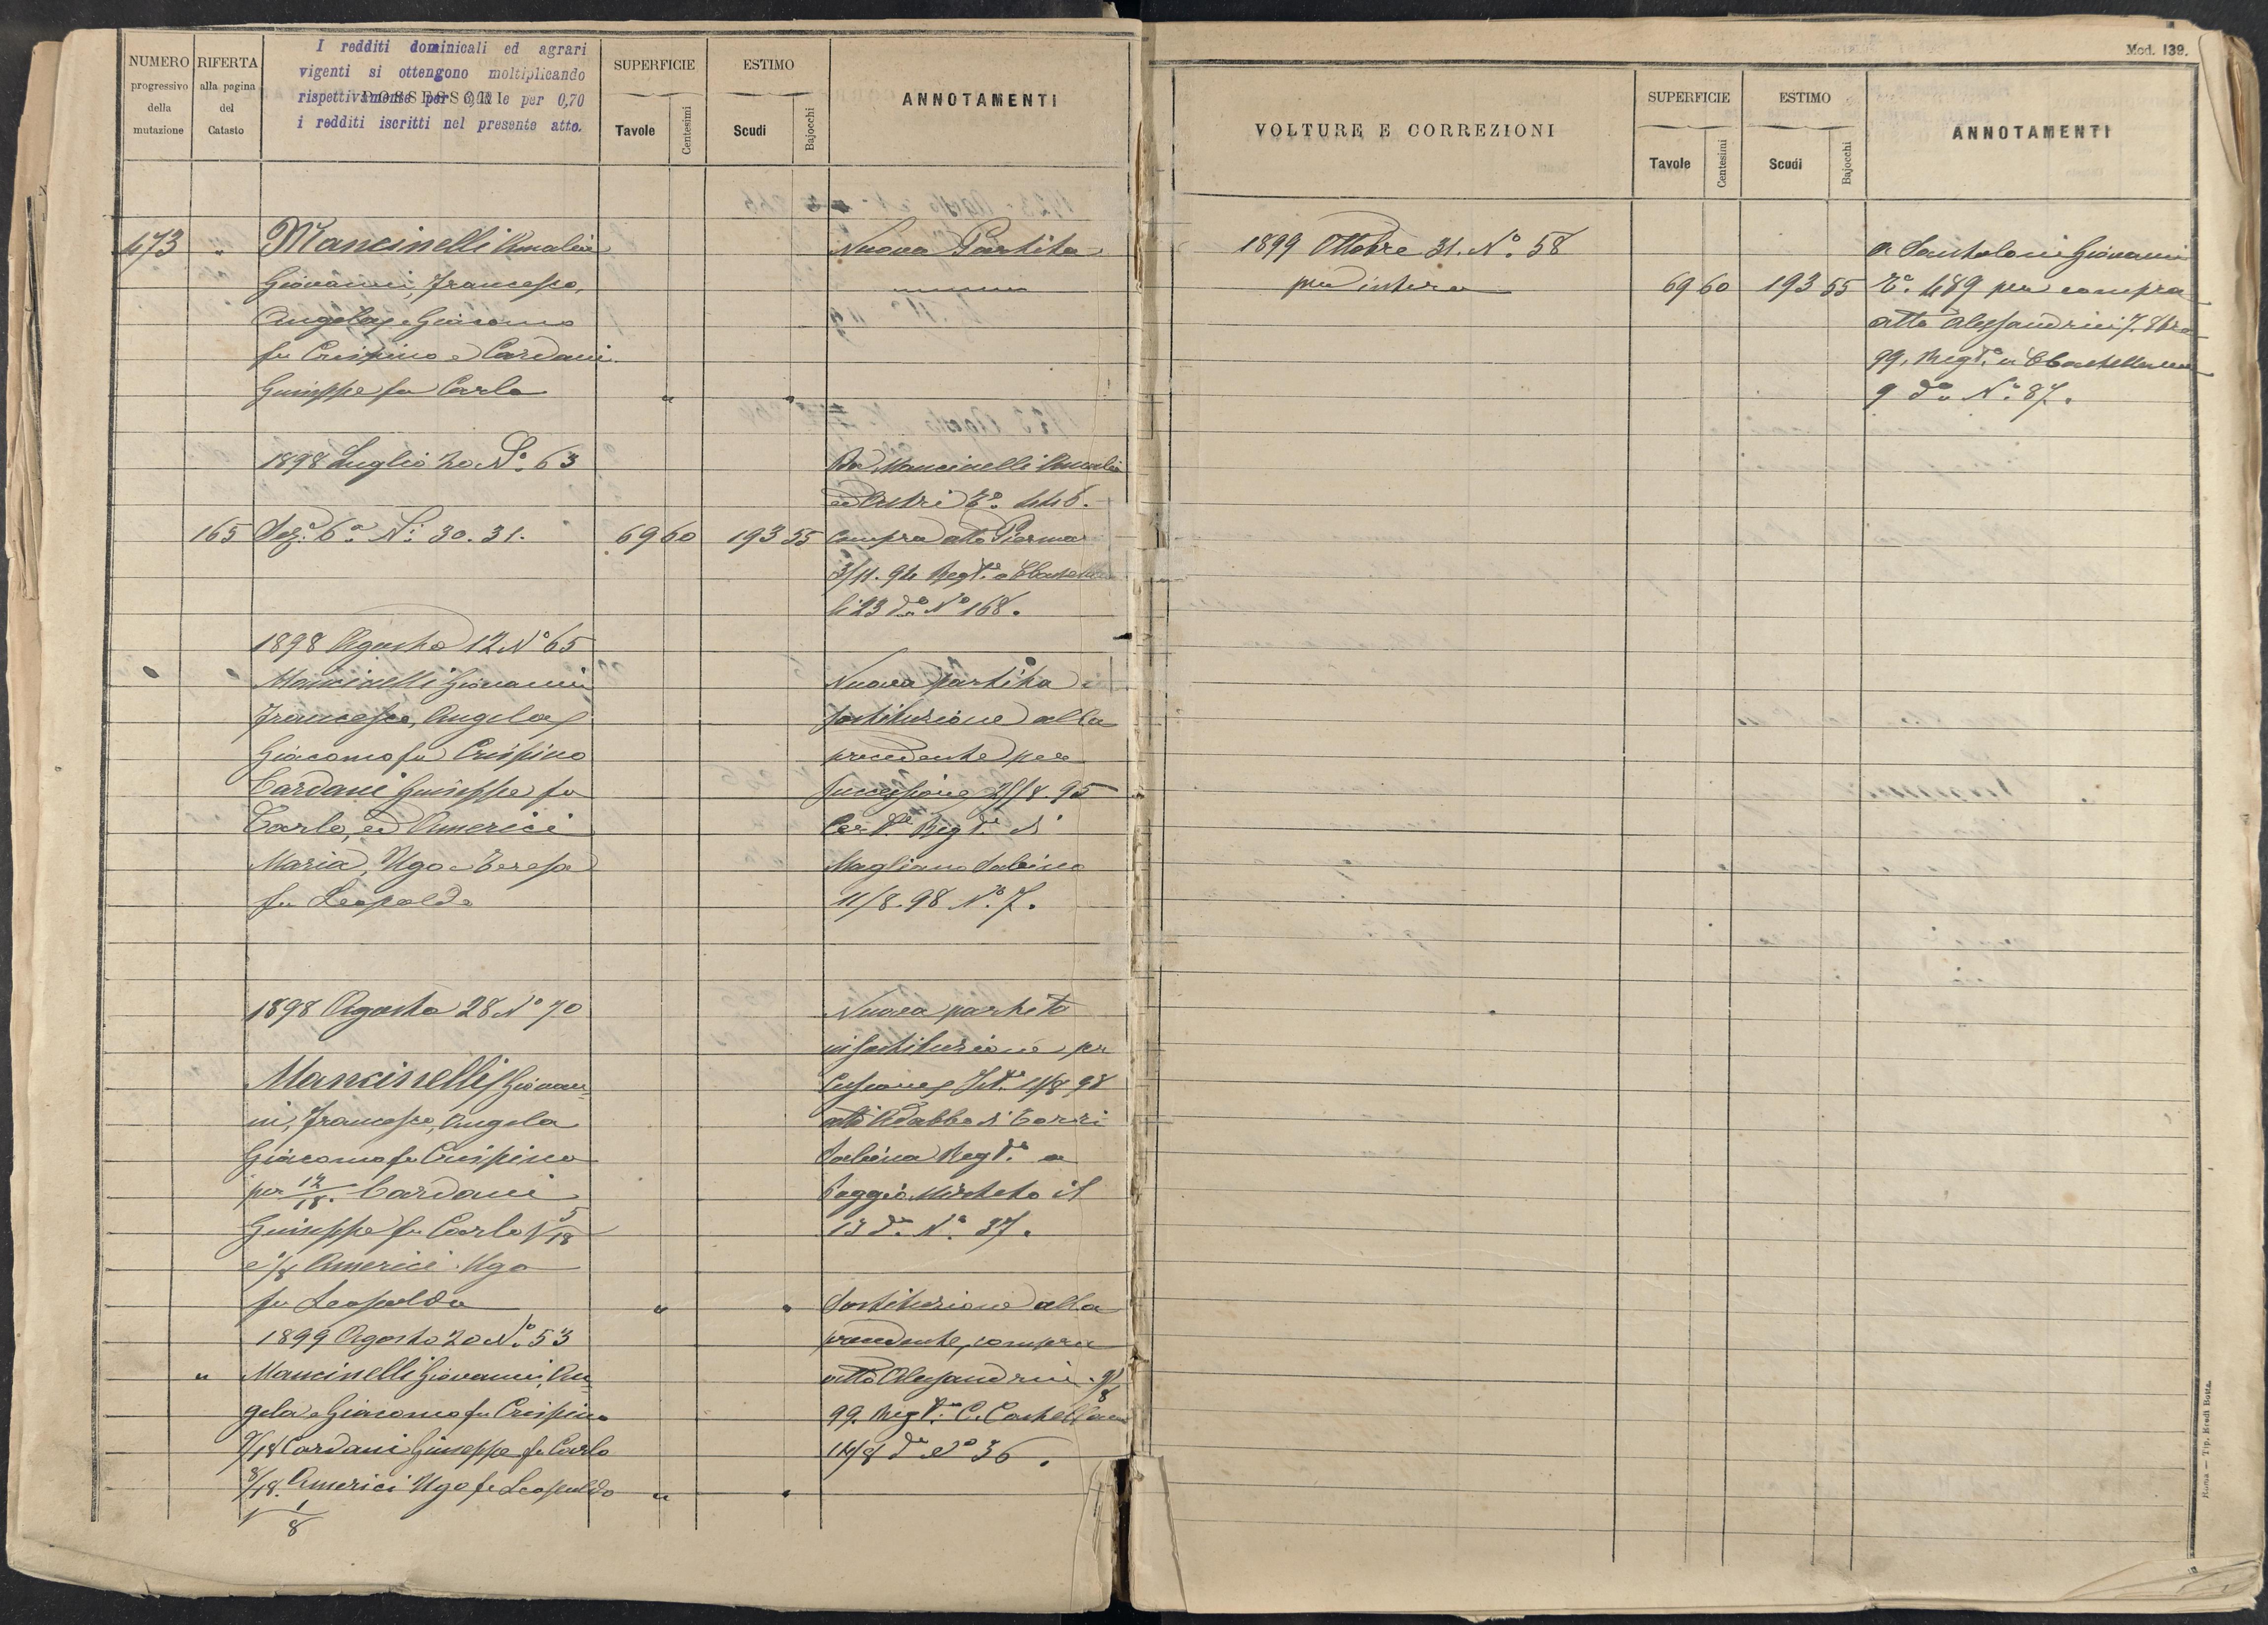 NUMERO progressivo della mutazione
RIFERTA alla pagina del Catasto
I redditi dominicali ed agrari
vigenti si ottengono moltiplicando
rispettivamente per le per 0,70
i redditi iscritti nel presente atto.
POSSESSORI
SUPERFICIE
Tavole Centesimi
ESTIMO
Scudi Bajocchi
ANNOTAMENTI
473 " Mancinelli Amalia
Giovanni, Francesco,
Angela e Giacomo
fu Crispino e Cardani
Giuseppe fu Carlo " "
Nuova Partita
1898 Luglio 20 N.º 63
Da Mancinelli Amalia
ed Altri T.º 446.
165 Sez.ª 6ª N.i 30. 31. 69 60 193 55 compra atto
3/11. 94 Reg.to a
li 23 d.º Nº 168.
1898 Agosto 12 Nº 65
" " Mancinelli Giovanni
Francesco, Angela
Giacomo fu Crispino
Cardani Giuseppe fu
Carlo, ed Americi
Maria, Ugo e Teresa
fu Leopoldo
Nuova partita
sostituzione alla
precedente per
successione 95
Reg.to di
Magliano Sabino
11/8. 98 N.º 7.
1898 Agosto 28 Nº 70
Mancinelli Giovan=
ni, Francesco, Angela
Giacomo fu Crispino
per 12/18. Cardani
Giuseppe fu Carlo p 5/18
e 1/18 Americi Ugo
fu Leopoldo " "
Nuova partita
in sostituzione per
98
atti di Torri
Sabina Reg.to a
Poggio Mirteto il
13 d.º N.º 37.
1899 Agosto 20 Nº. 53
" Mancinelli Giovanni, An=
gela e Giacomo fu Crispino
9/18 Cardani Giuseppe fu Carlo
8/18. Americi Ugo fu Leopoldo " "
p 1/8
Sostituzione alla
precedente, compra
atto Alessandrini
99. Reg.to C. Castellana
14/8 d.º Nº 36.
Mod. 139.
VOLTURE E CORREZIONI
SUPERFICIE
Tavole Centesimi
ESTIMO
Scudi Bajocchi
ANNOTAMENTI
1899 Ottobre 31. Nº. 58
per intero 69 60 193 55
a Santoloni Giovanni
T.º 489 per compra
atto Alessandrini 7. 8bre
99. Reg.to a
9 d.º Nº. 87.
Roma — Tip. Eredi Botta.